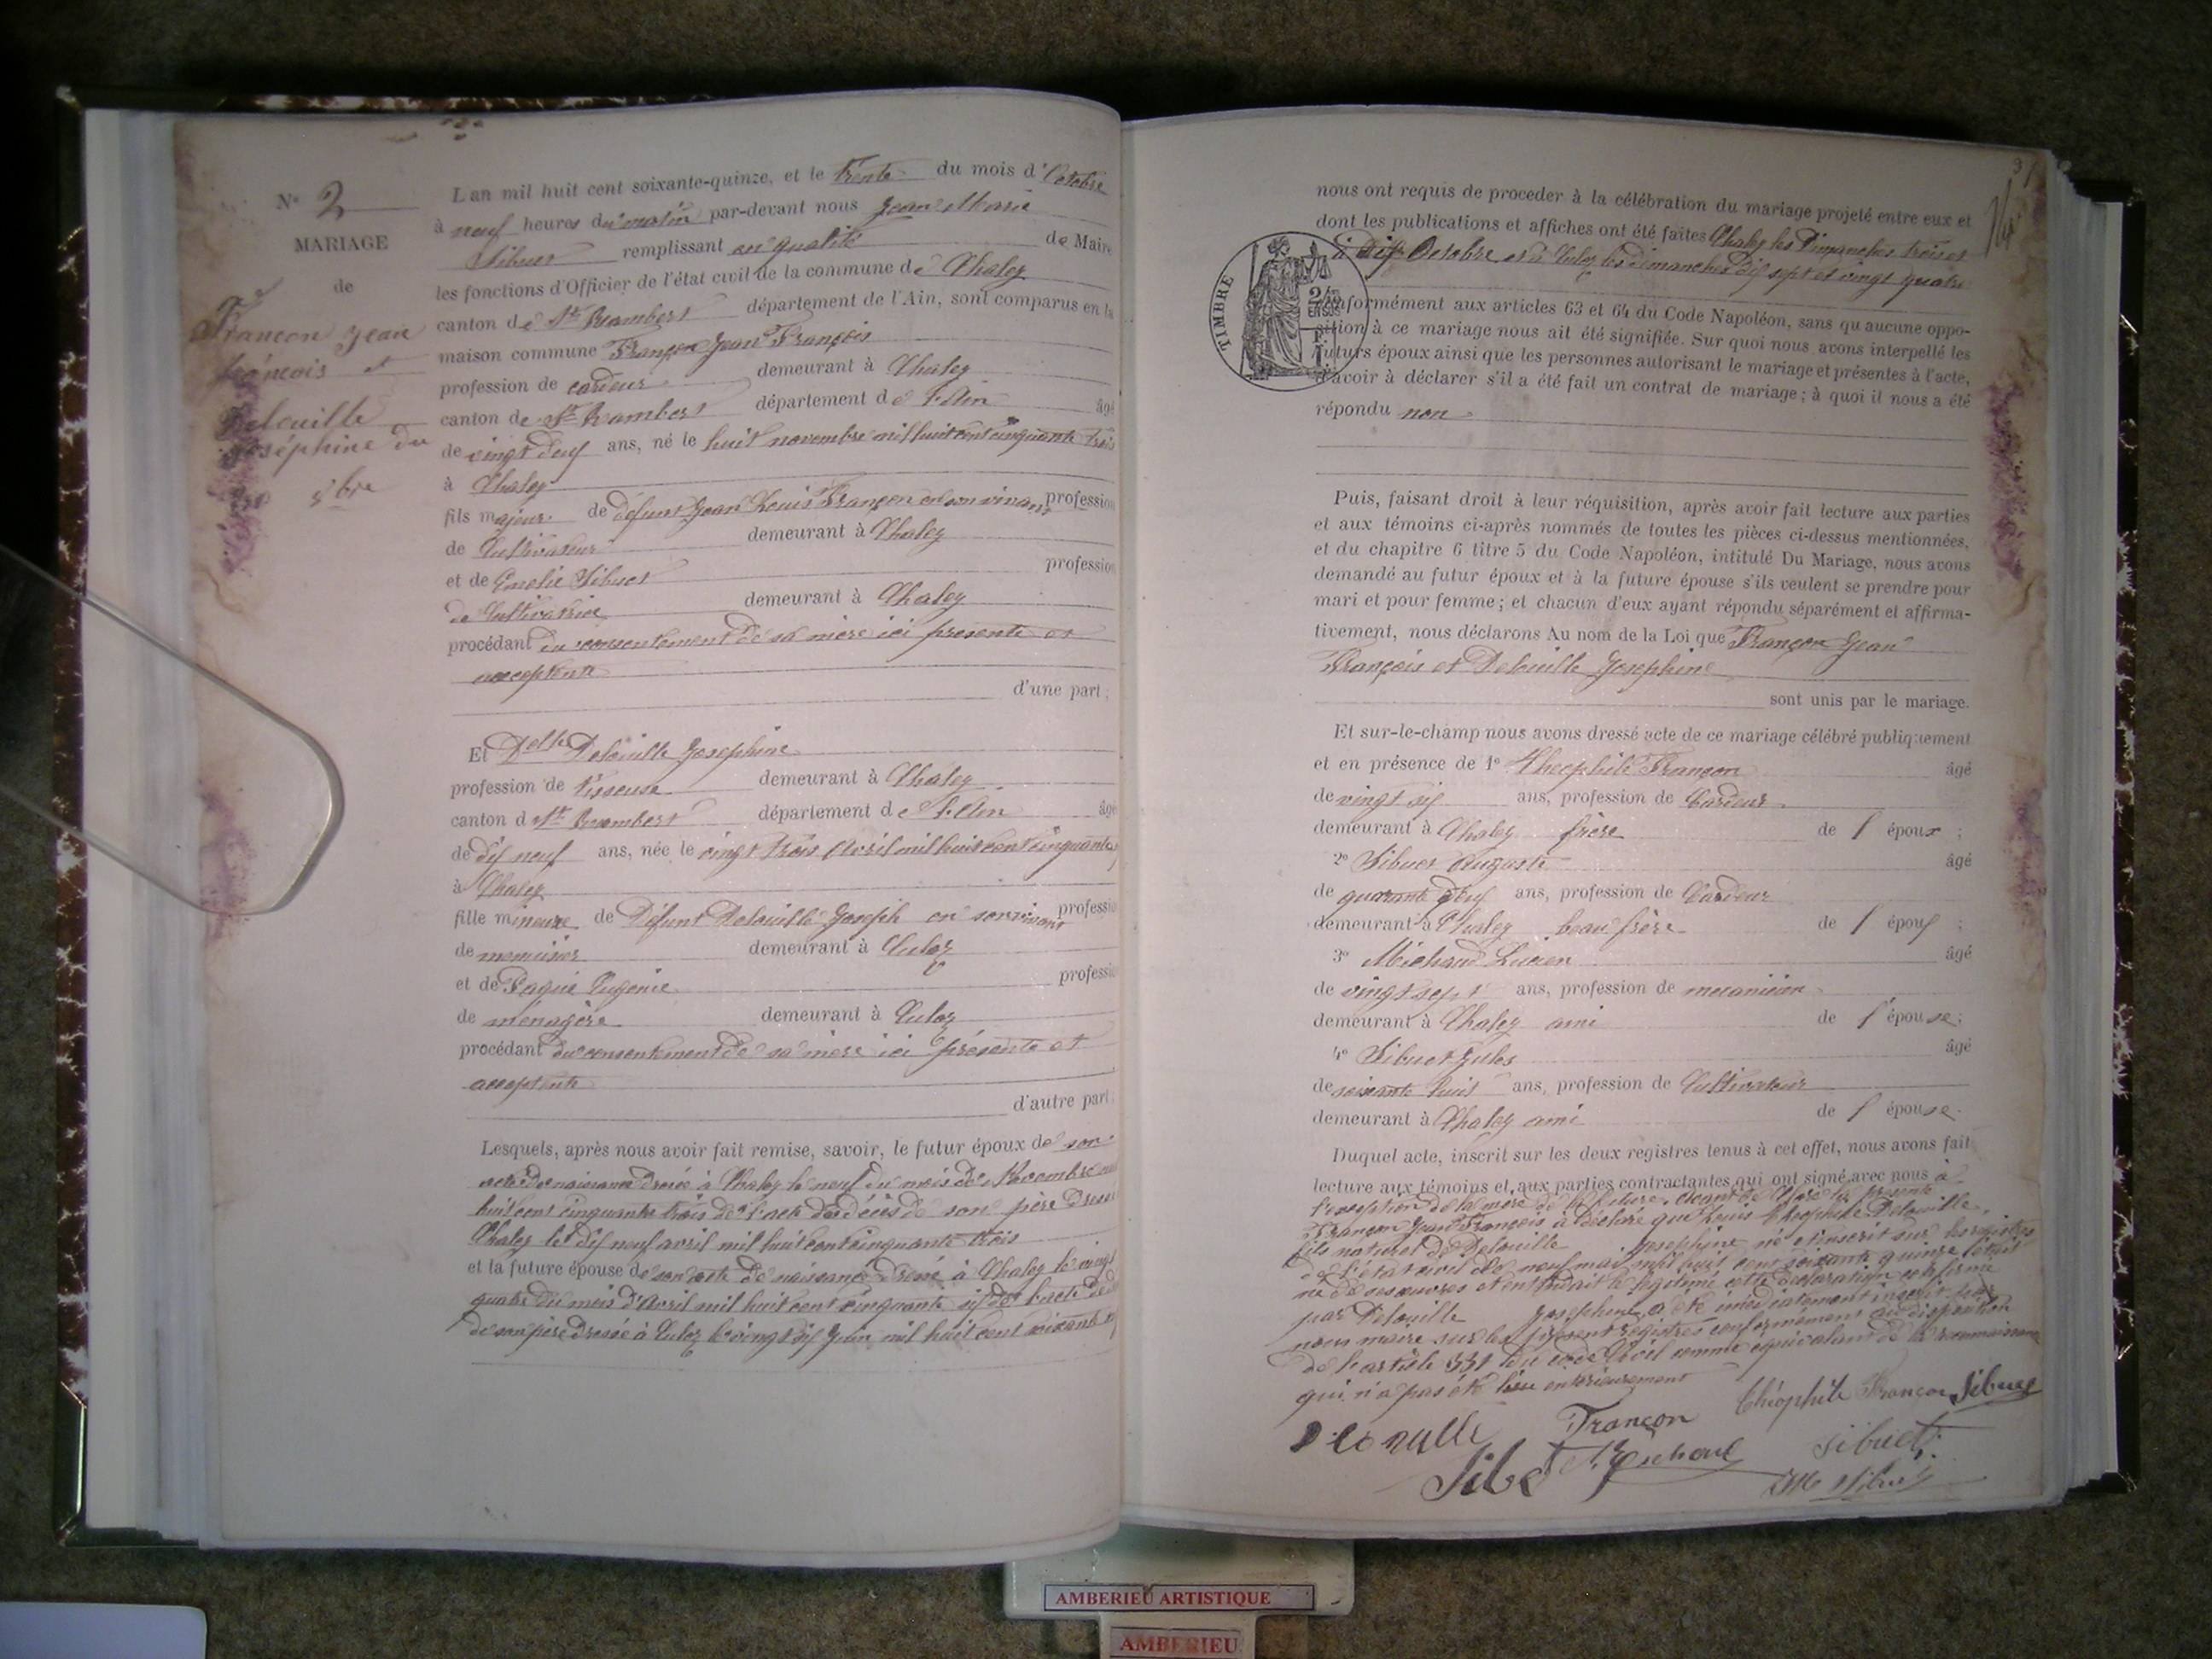 N° 2
MARIAGE
de
Françon Jean
françois et
Delouille
Joséphine du
30 8bre
L'an mil huit cent soixante-quinze, et le Trente du mois d'Octobre
à neuf heures du matin par-devant nous Jean Marie
Sibuet remplissant en qualité de Maire
les fonctions d'Officier de l'état civil de la commune de Chaley
canton de St Rambert département de l'Ain, sont comparus en la
maison commune Françon Jean François
profession de cardeur demeurant à Chaley
canton de St Rambert département de l'Ain âgé
de vingt deux ans, né le huit novembre mil huit cent cinquante trois
à Chaley
fils majeur de défunt Jean Louis Françon en son vivant profession
de Cultivateur demeurant à Chaley
et de Emelie Sibuet profession
de Cultivatrice demeurant à Chaley
procédant du consentement de sa mère ici présente et
acceptante
d'une part;
Et Delle Delouille Josephine
profession de tisseuse demeurant à Chaley
canton de St Rambert département de l'Ain âgé
de dix neuf ans, née le vingt trois Avril mil huit cent cinquante
à Chaley
fille mineure de Défunt Delouille Joseph en son vivant professio
de menuisier demeurant à Culoz
et de Paquie Eugenie professio
de ménagère demeurant à Culoz
procédant du consentement de sa mère ici présente et
acceptante
d'autre part.
Lesquels, après nous avoir fait remise, savoir, le futur époux de son
acte de naissance dressé à Chaley le neuf du mois de Novembre mil
huit cent cinquante trois de l'acte de décès de son père dressé
Chaley le dix neuf avril mil huit cent cinquante trois
et la future épouse de son acte de naissance dressé à Chaley le vingt
quatre du mois d'Avril mil huit cent cinquante six de l'acte de
de son père dressé à Culoz le vingt six Juin mil huit cent soixante
37
nous ont requis de proceder à la célébration du mariage projeté entre eux et
dont les publications et affiches ont été faites Chaley les Dimanches trois et
à dix Octobre et à Culoz les dimanches dix sept et vingt quatre
TIMBRE
2/10 EN SUS
conformément aux articles 63 et 64 du Code Napoléon, sans qu'aucune oppo-
sition à ce mariage nous ait été signifiée. Sur quoi nous avons interpellé les
futurs époux ainsi que les personnes autorisant le mariage et présentes à l'acte,
d'avoir à déclarer s'il a été fait un contrat de mariage; à quoi il nous a été
répondu non
Puis, faisant droit à leur réquisition, après avoir fait lecture aux parties
et aux témoins ci-après nommés de toutes les pièces ci-dessus mentionnées,
et du chapitre 6 titre 5 du Code Napoléon, intitulé Du Mariage, nous avons
demandé au futur époux et à la future épouse s'ils veulent se prendre pour
mari et pour femme; et chacun d'eux ayant répondu séparément et affirma-
tivement, nous déclarons Au nom de la Loi que Françon Jean
François et Delouille Josephine
sont unis par le mariage.
Et sur-le-champ nous avons dressé acte de ce mariage célébré publiquement
et en présence de 1° Theophile Françon âgé
de vingt six ans, profession de Cardeur
demeurant à Chaley frère de l'époux;
2° Sibuet Auguste âgé
de quarante deux ans, profession de Cardeur
demeurant à Chaley beau frère de l'époux;
3° Michaud Lucien âgé
de vingt sept ans, profession de mecanicien
demeurant à Chaley ami de l'épouse;
4° Sibuet Jules âgé
de soixante huit ans, profession de Cultivateur
demeurant à Chaley ami de l'épouse.
Duquel acte, inscrit sur les deux registres tenus à cet effet, nous avons fait
lecture aux témoins et aux parties contractantes qui ont signé avec nous à
l'exception de la mère de la future
Françon Jean François a déclaré que Louis Theophile Delouille
fils naturel de Delouille Josephine né et inscrit sur les registres
de l'état civil le neuf mai mil huit cent soixante quinze était
né de ses œuvres et cette déclaration confirmé
par Delouille Josephine a été immédiatement inscrit par
nous maire sur les présent registres conformément au disposition
de l'article 331 du code Civil comme équivalant de la reconnaissance
qui n'a pas été lieu antérieurement
Delouille Françon Théophile Françon Sibuet
Sibuet Michaud Sibuet
JM Sibuet
AMBERIEU ARTISTIQUE
AMBERIEU